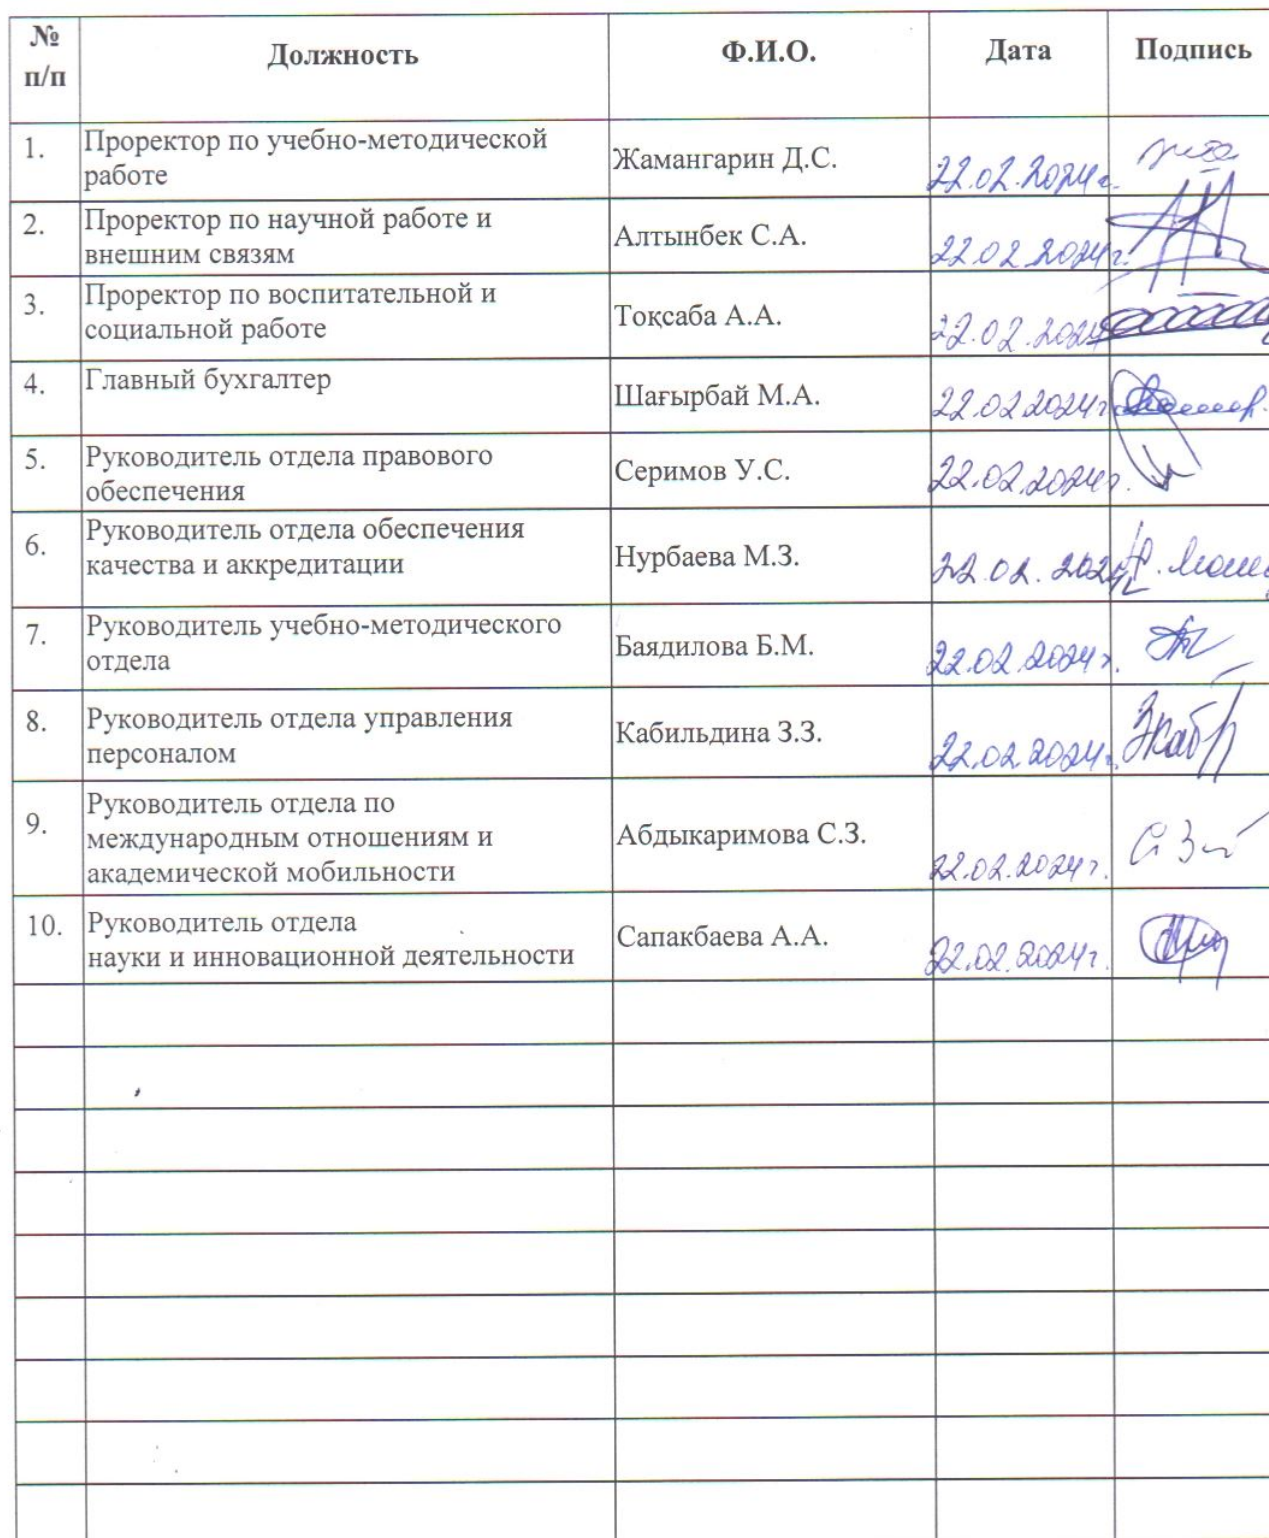 № п/п Должность Ф.И.О. Дата Подпись
1. Проректор по учебно-методической
работе Жамангарин Д.С. 22.02.2024г.
2. Проректор по научной работе и
внешним связям Алтынбек С.А. 22.02.2024г.
3. Проректор по воспитательной и
социальной работе Тоқсаба А.А. 22.02.2024
4. Главный бухгалтер Шағырбай М.А. 22.02.2024г
5. Руководитель отдела правового
обеспечения Серимов У.С. 22.02.2024г.
6. Руководитель отдела обеспечения
качества и аккредитации Нурбаева М.З. 22.02.2024г
7. Руководитель учебно-методического
отдела Баядилова Б.М. 22.02.2024г.
8. Руководитель отдела управления
персоналом Кабильдина З.З. 22.02.2024г.
9. Руководитель отдела по
международным отношениям и
академической мобильности Абдыкаримова С.З. 22.02.2024г.
10. Руководитель отдела
науки и инновационной деятельности Сапакбаева А.А. 22.02.2024г.